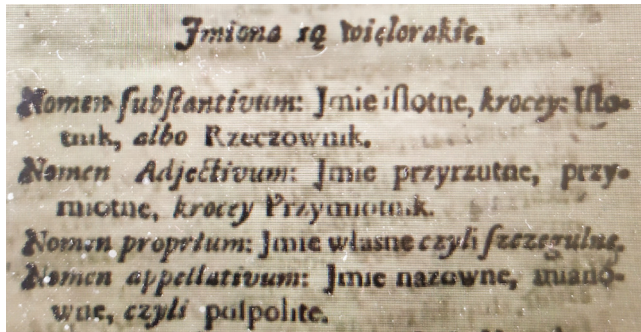 Jmiona są więlorakie.
Nomen ſubſtantivum: Jmie iſtotne, krocey: Iſto-
tnik, albo Rzeczownik.
Nomen Adjectivum: Jmie przyrzutne, przy-
miotne, krocey Przymiotnik.
Nomen proprium: Jmie własne czyli ſzczegulne.
Nomen appellativum: Jmie nazowne, miano-
wne, czyli poſpolite.